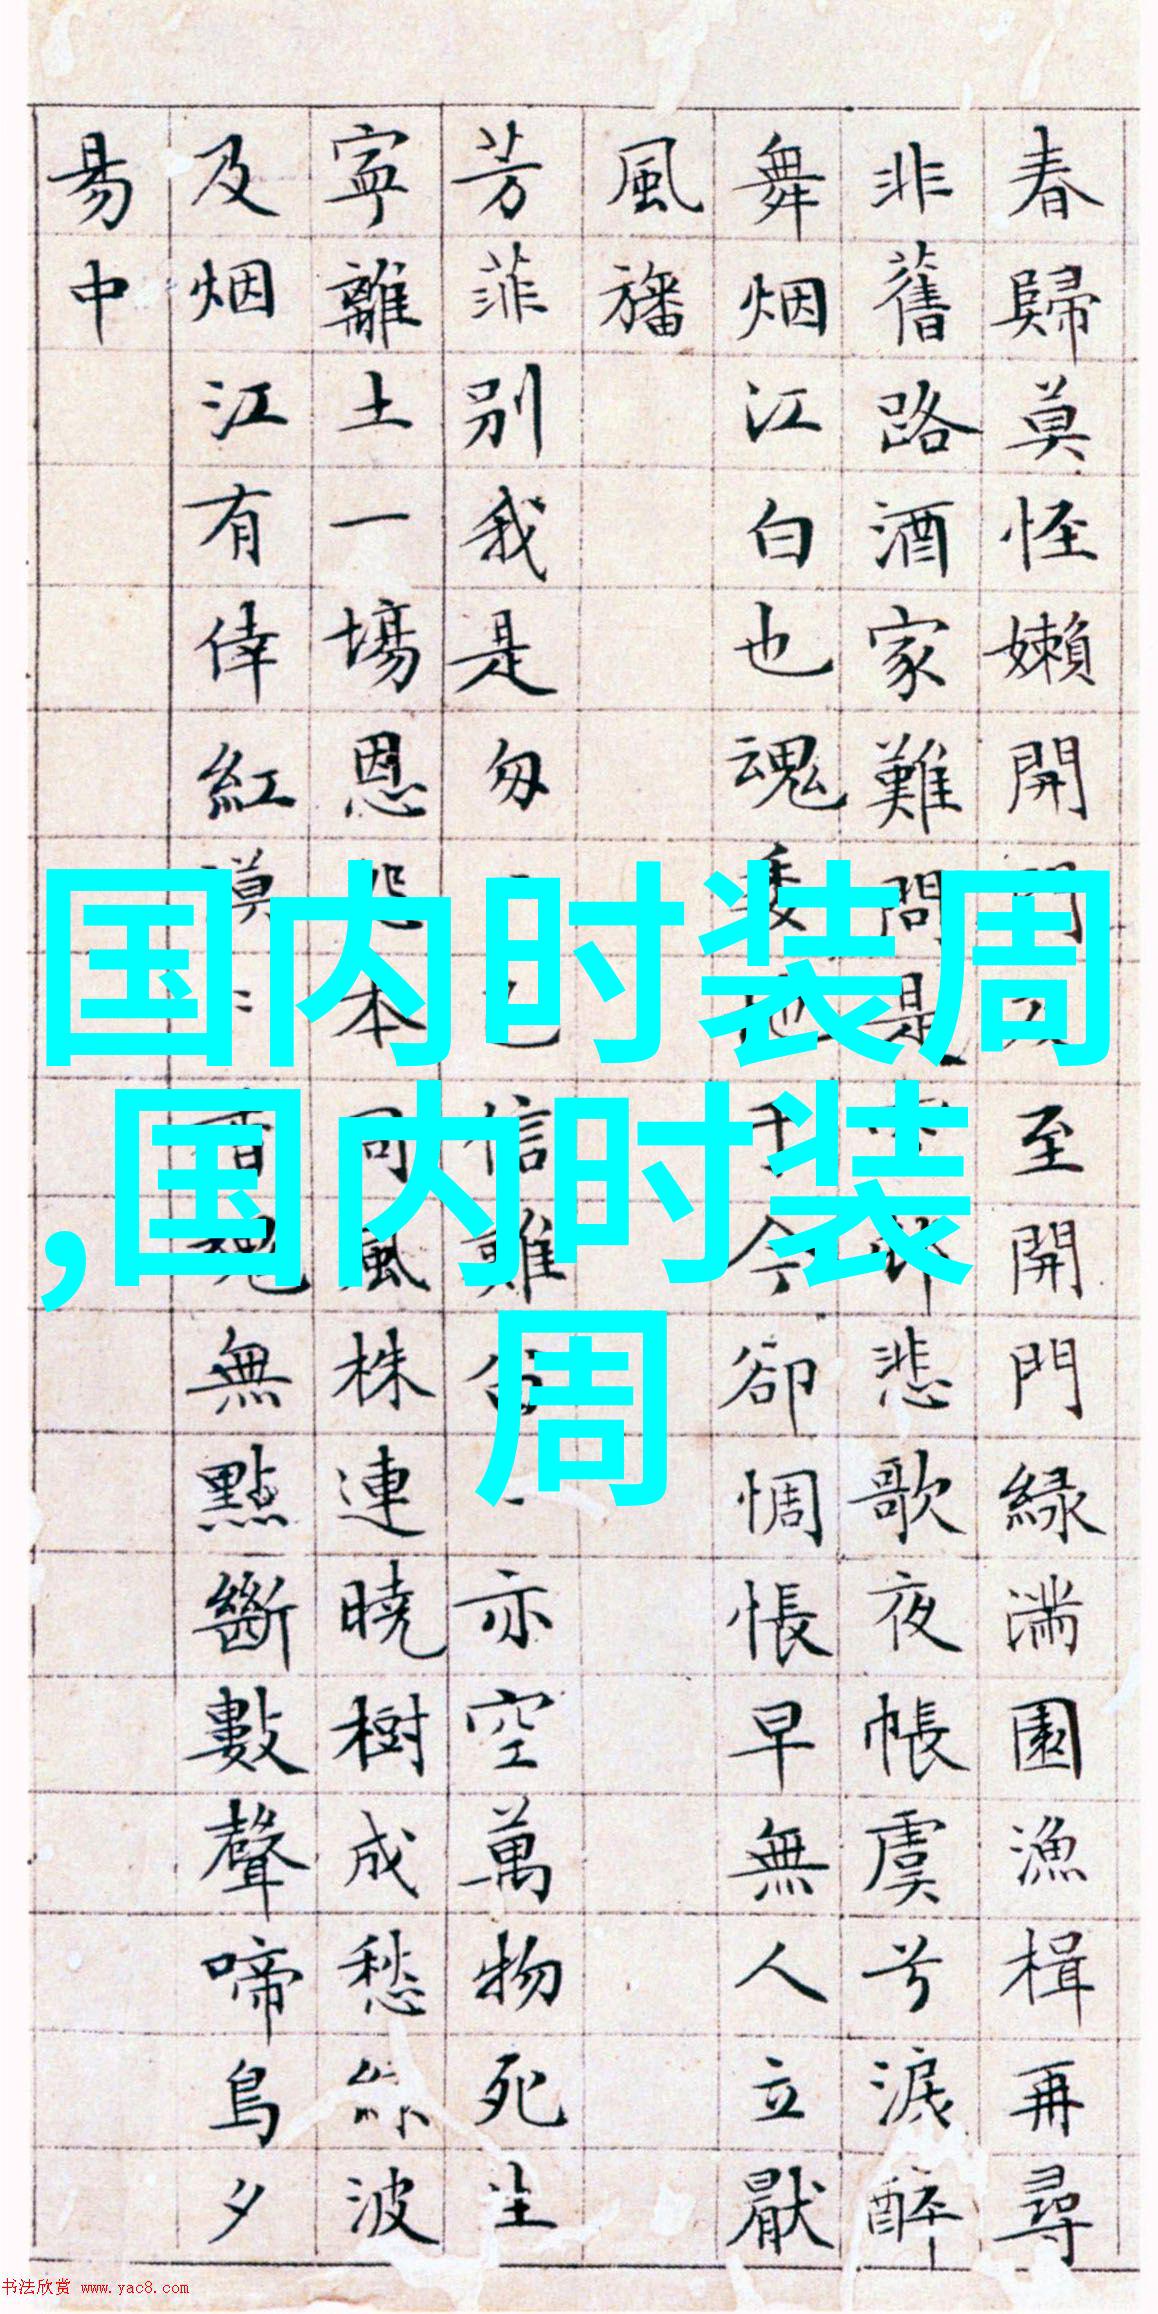 春歸莫怪嬾開門及至開門緑滿園漁楫再尋
非舊路酒家難問是
悲歌夜帳虞兮淚醉
舞烟江白也魂委
于今卻惆悵早無人立厭
風旛
芳菲別我是匆
信難
亦空萬物死生
寧離土一場恩怨本同風株連曉樹成愁
波
及烟江有倖紅
無點斷數聲啼鳥夕
易中
国内时装周
,国内时装
周
书法欣赏 www.yac8.com